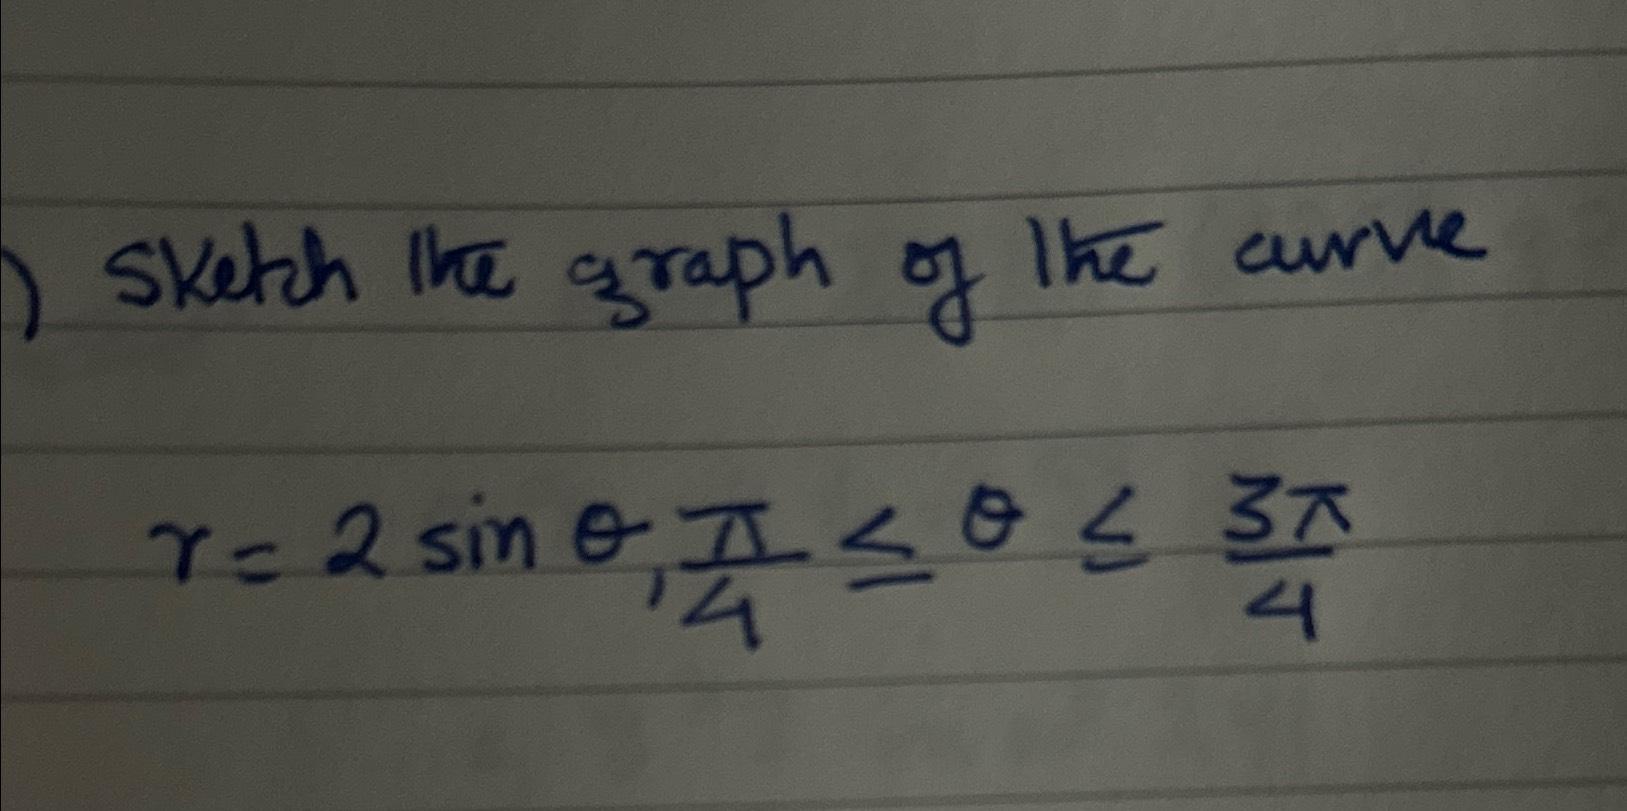 ) Sketch the graph of the curve
r = 2 sin θ, π/4 ≤ θ ≤ 3π/4